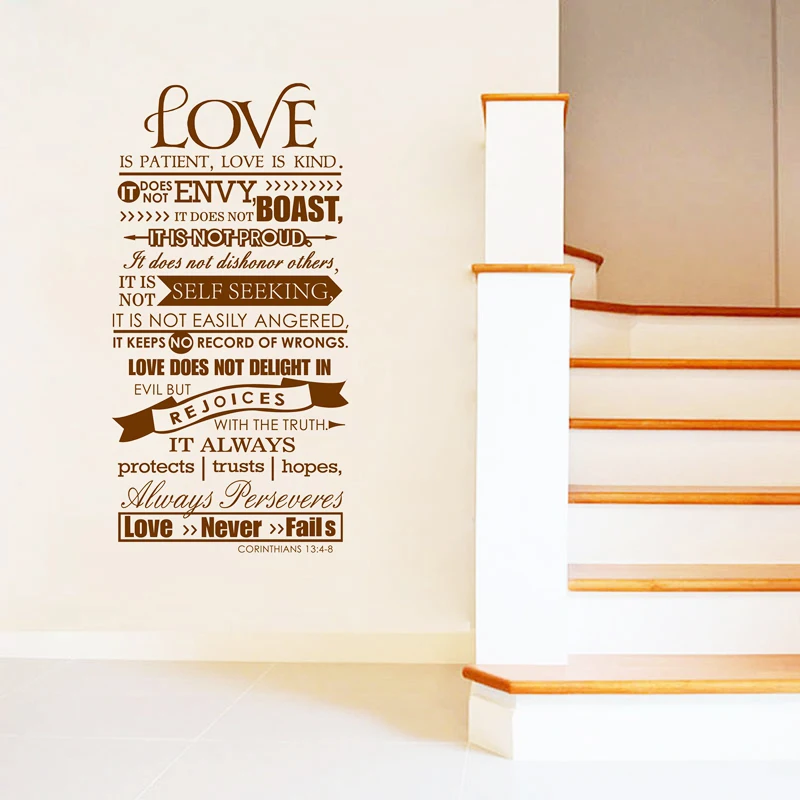 LOVE
IS PATIENT, LOVE IS KIND.
IT DOES NOT ENVY, >>>>>>>>>
>>>>>> IT DOES NOT BOAST,
IT IS NOT PROUD.
It does not dishonor others,
IT IS NOT SELF SEEKING,
IT IS NOT EASILY ANGERED,
IT KEEPS NO RECORD OF WRONGS.
LOVE DOES NOT DELIGHT IN
EVIL BUT
REJOICES
WITH THE TRUTH.
IT ALWAYS
protects | trusts | hopes,
Always Perseveres
Love >> Never >> Fails
CORINTHIANS 13:4-8